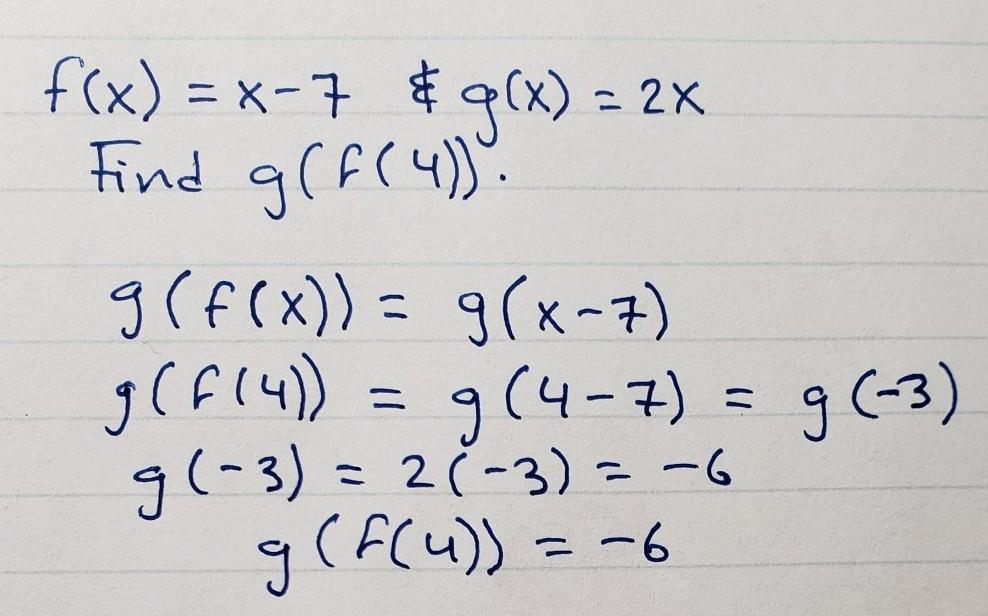 f(x) = x-7 & g(x) = 2x
Find g(f(4)).
g(f(x)) = g(x-7)
g(f(4)) = g(4-7) = g(-3)
g(-3) = 2(-3) = -6
g(f(4)) = -6